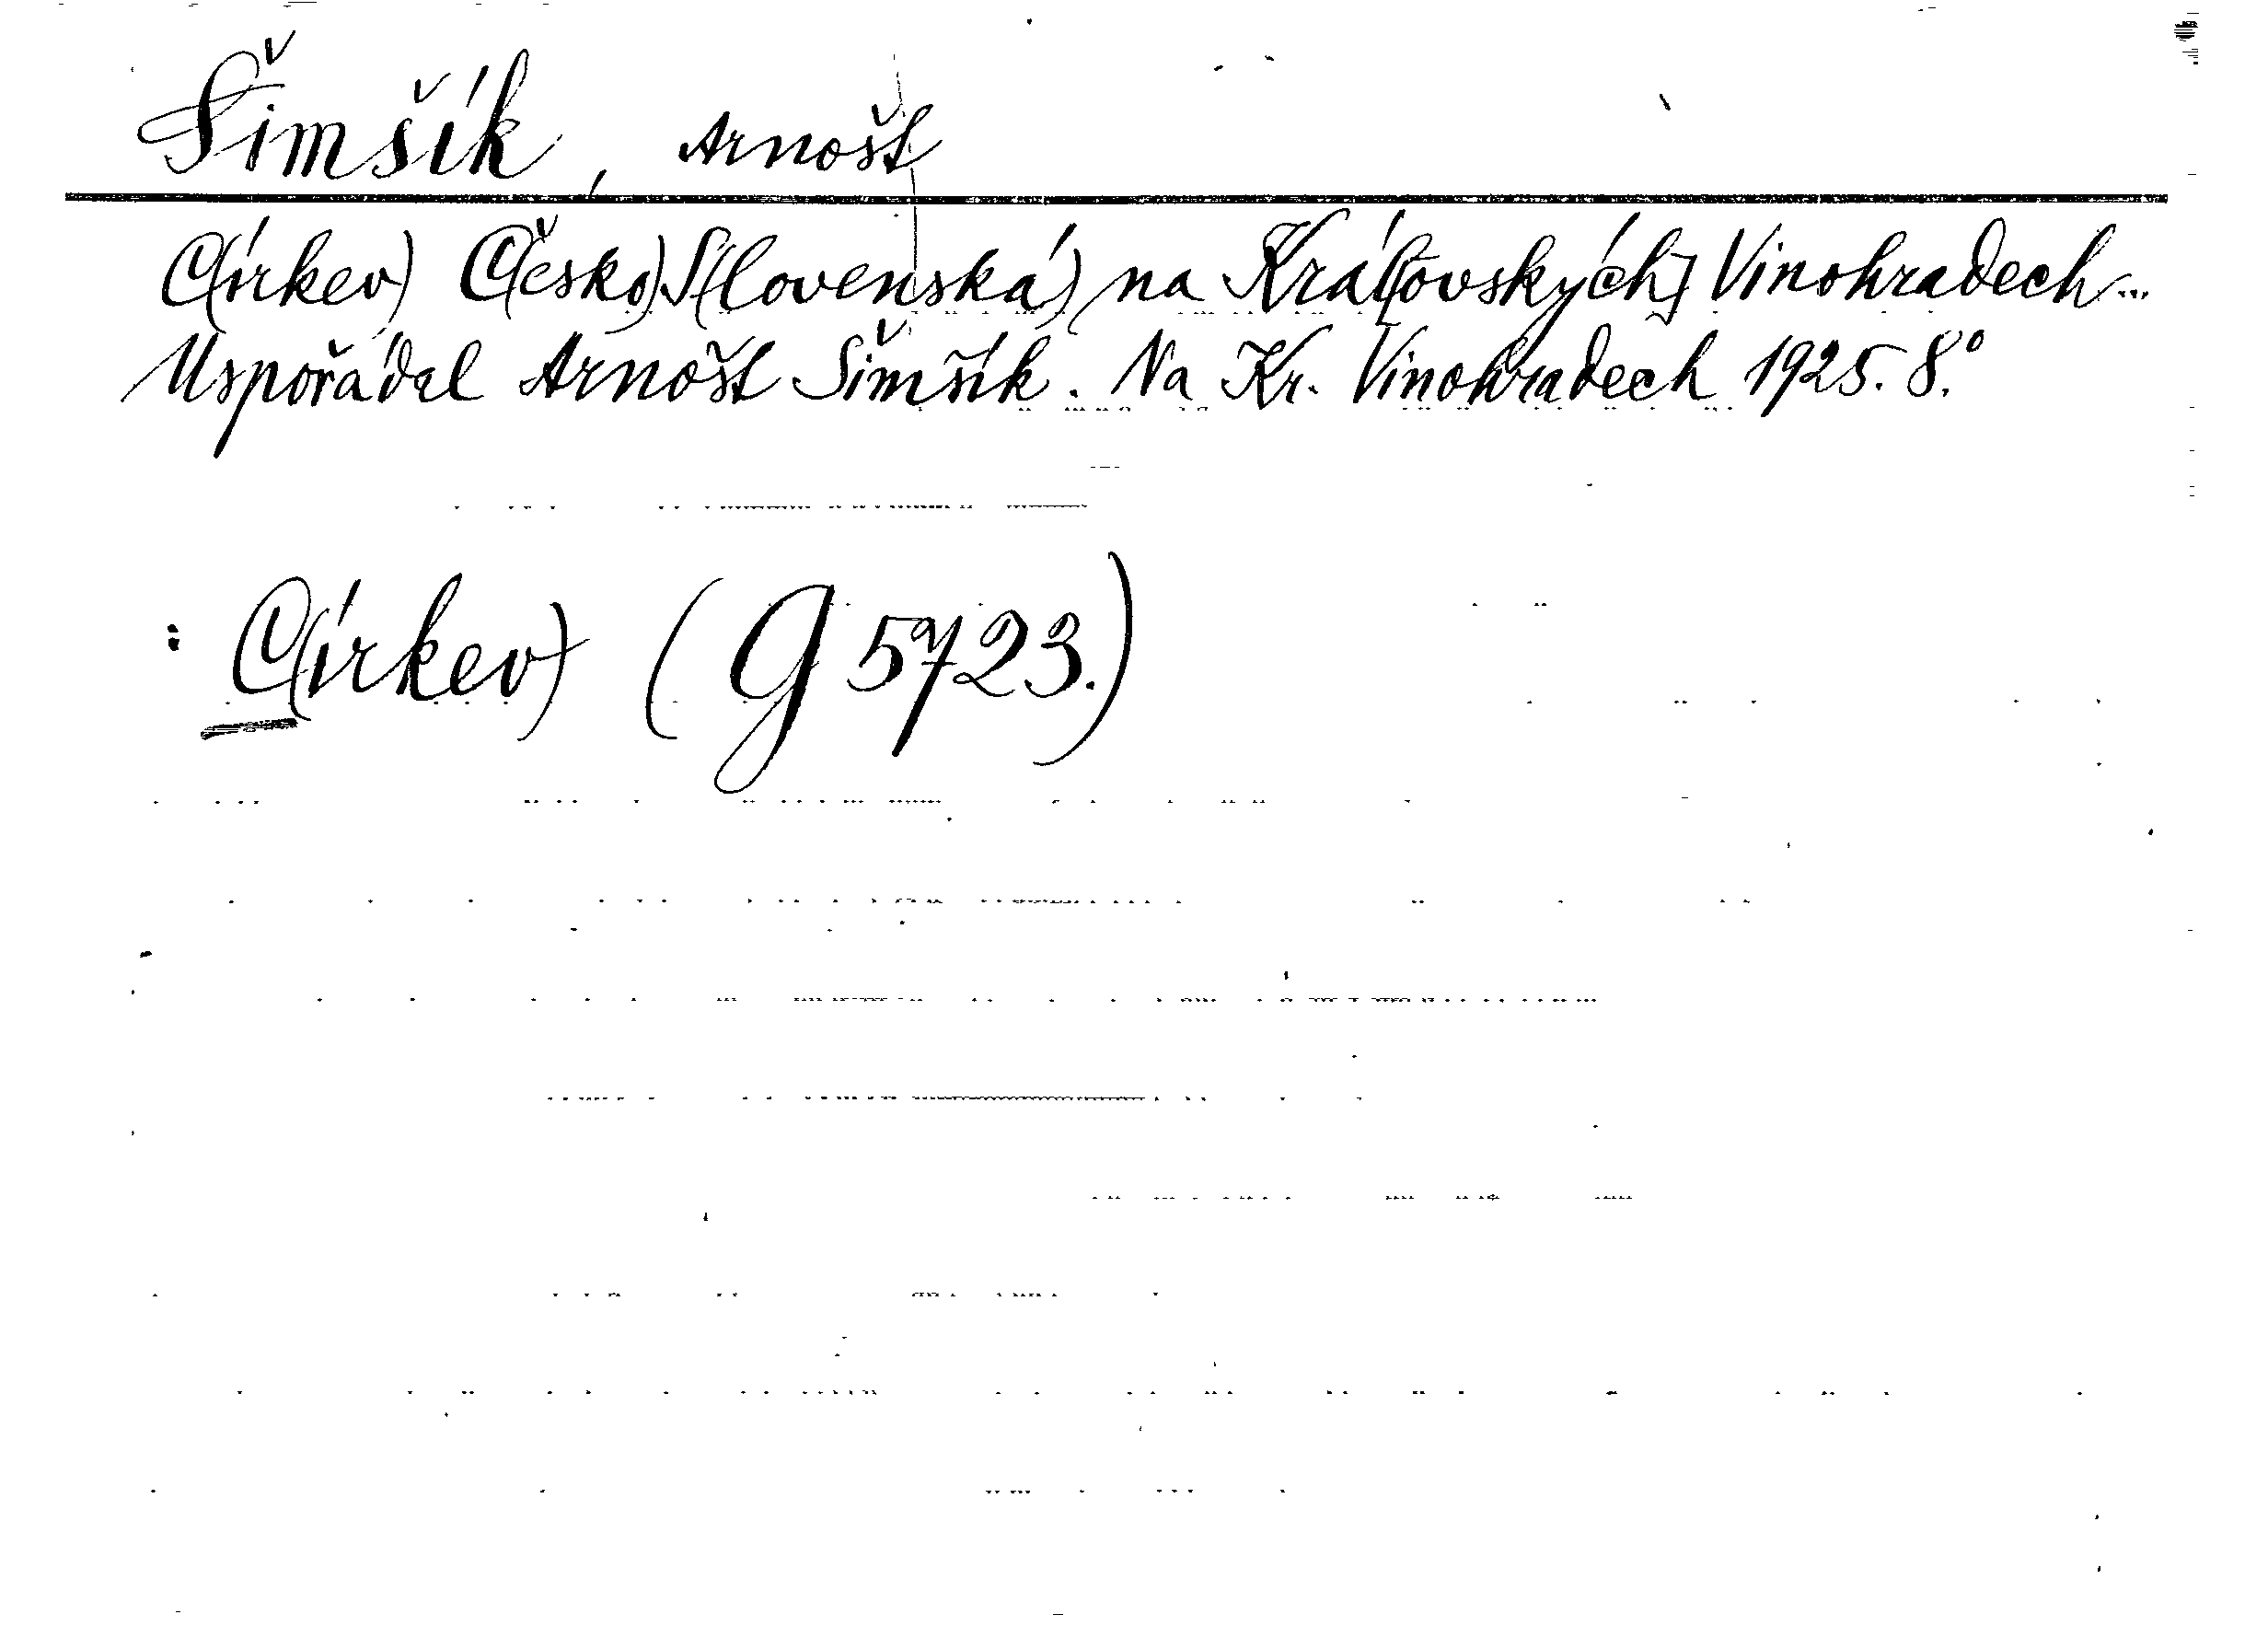 Šimšík, Arnošt
C(írkev) Č(esko)S(lovenská) na Král[ovských] Vinohradech...
Uspořádal Arnošt Šimšík. Na Kr. Vinohradech 1925. 8.°
: C(írkev) (G 5723.)